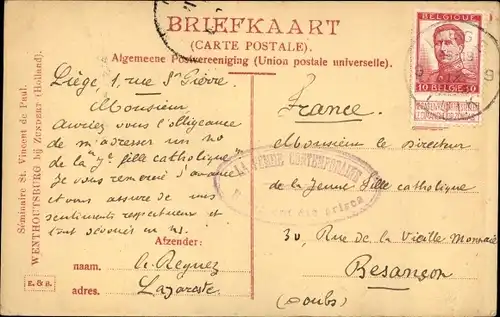 BRIEFKAART
(CARTE POSTALE).
Algemeene Postvereeniging (Union postale universelle).
Séminaire St. Vincent de Paul.
WENTHOUTSBURG bij ZUNDERT (Holland).
Liége 1, rue St Pierre
Monsieur
auriez vous l'obligeance
de m'adresser un no
de la "Je fille catholique"
Je vous remercie d'avance
et vous assure de mes
sentiments respectueux et
tout dévoués in
Afzender:
naam.
adres. Lazariste
E. & B.
BELGIQUE
10 BELGIË 10
LA FEMME CONTEMPORAINE
France.
Monsieur le Directeur
de la Jeune Fille catholique
30, Rue de la Vieille Monnaie
Besançon
(Doubs)